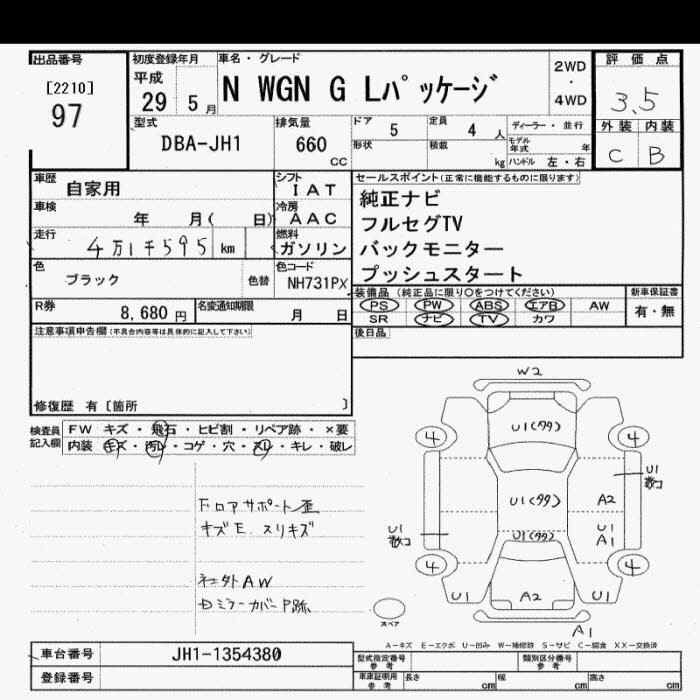 出品番号
[2210]
97
初度登録年月
平成
29 5月
車名・グレード
N WGN G Lパッケージ
2WD
・
4WD
評価点
3.5
外装 内装
C B
型式
DBA-JH1
排気量
660
CC
ドア 5
定員 4 人
ディーラー・並行
形状
積載 kg
モデル年式 年
ハンドル 左・右
車歴 自家用
シフト
IAT
車検 年 月( 日)
冷房
AAC
走行 4万1千595 km
燃料
ガソリン
色 ブラック 色替
色コード
NH731PX
R券 8,680 円
名変通知期限 月 日
セールスポイント(正常に機能するものに限ります)
純正ナビ
フルセグTV
バックモニター
プッシュスタート
装備品 (純正品に限り○をつけてください)
PS PW ABS エアB AW
SR ナビ TV カワ
新車保証書
有・無
後日品
注意事項申告欄(不具合内容等は具体的に記入して下さい)
修復歴 有〔箇所 〕
検査員記入欄
FW キズ・飛石・ヒビ割・リペア跡・×要
内装 キズ・汚レ・コゲ・穴・スレ・キレ・破レ
フロアサポート歪
キズE スリキズ
社外AW
ミラーカバーP跡
W2
U1(タタ)
4 4
U1
数コ
U1(タタ)
A2
U1
A1
U1
数コ
U1(タタ)
4 4
U1 A2 U1
A1
スペア
A-キズ E-エクボ U-凹み W-補修跡 S-サビ C-腐食 XX-交換済
車台番号 JH1-1354380
登録番号
型式指定番号
参考
類別区分番号
参考
車庫証明用
参考
長さ cm
幅 cm
高さ cm